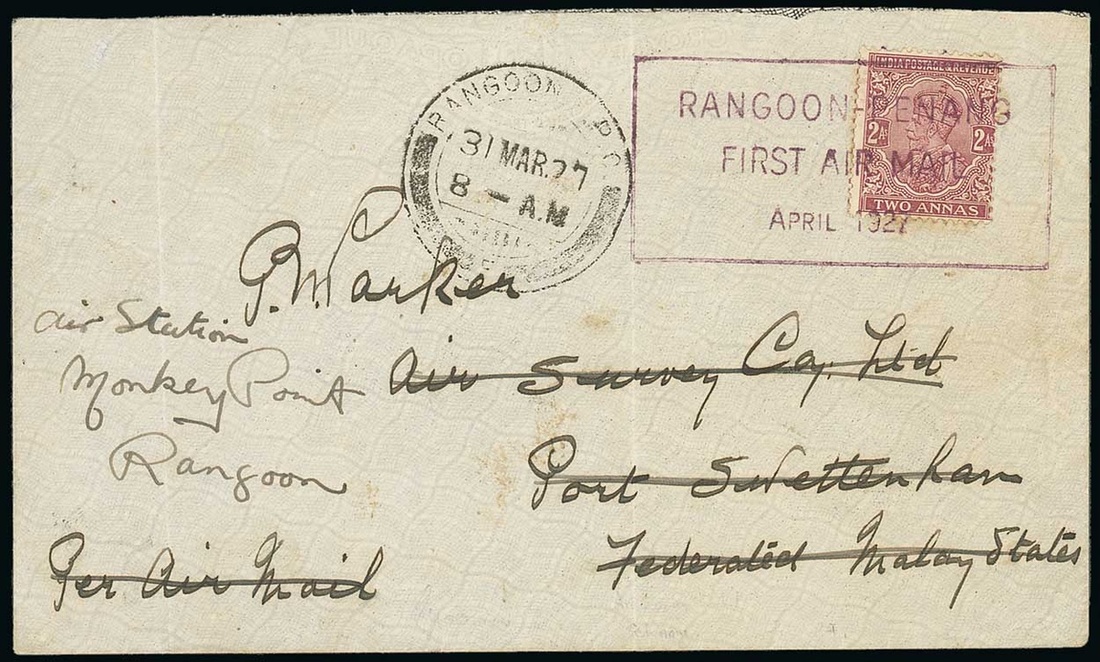 RANGOON G.P.O.
31 MAR.27
8 — A.M
RANGOON-PENANG
FIRST AIR MAIL
APRIL 1927
INDIA POSTAGE & REVENUE
2As 2As
TWO ANNAS
G. W. Parker
Air Survey Coy. Ltd
Port Swettenham
Federated Malay States
Per Air Mail
Air Station
Monkey Point
Rangoon